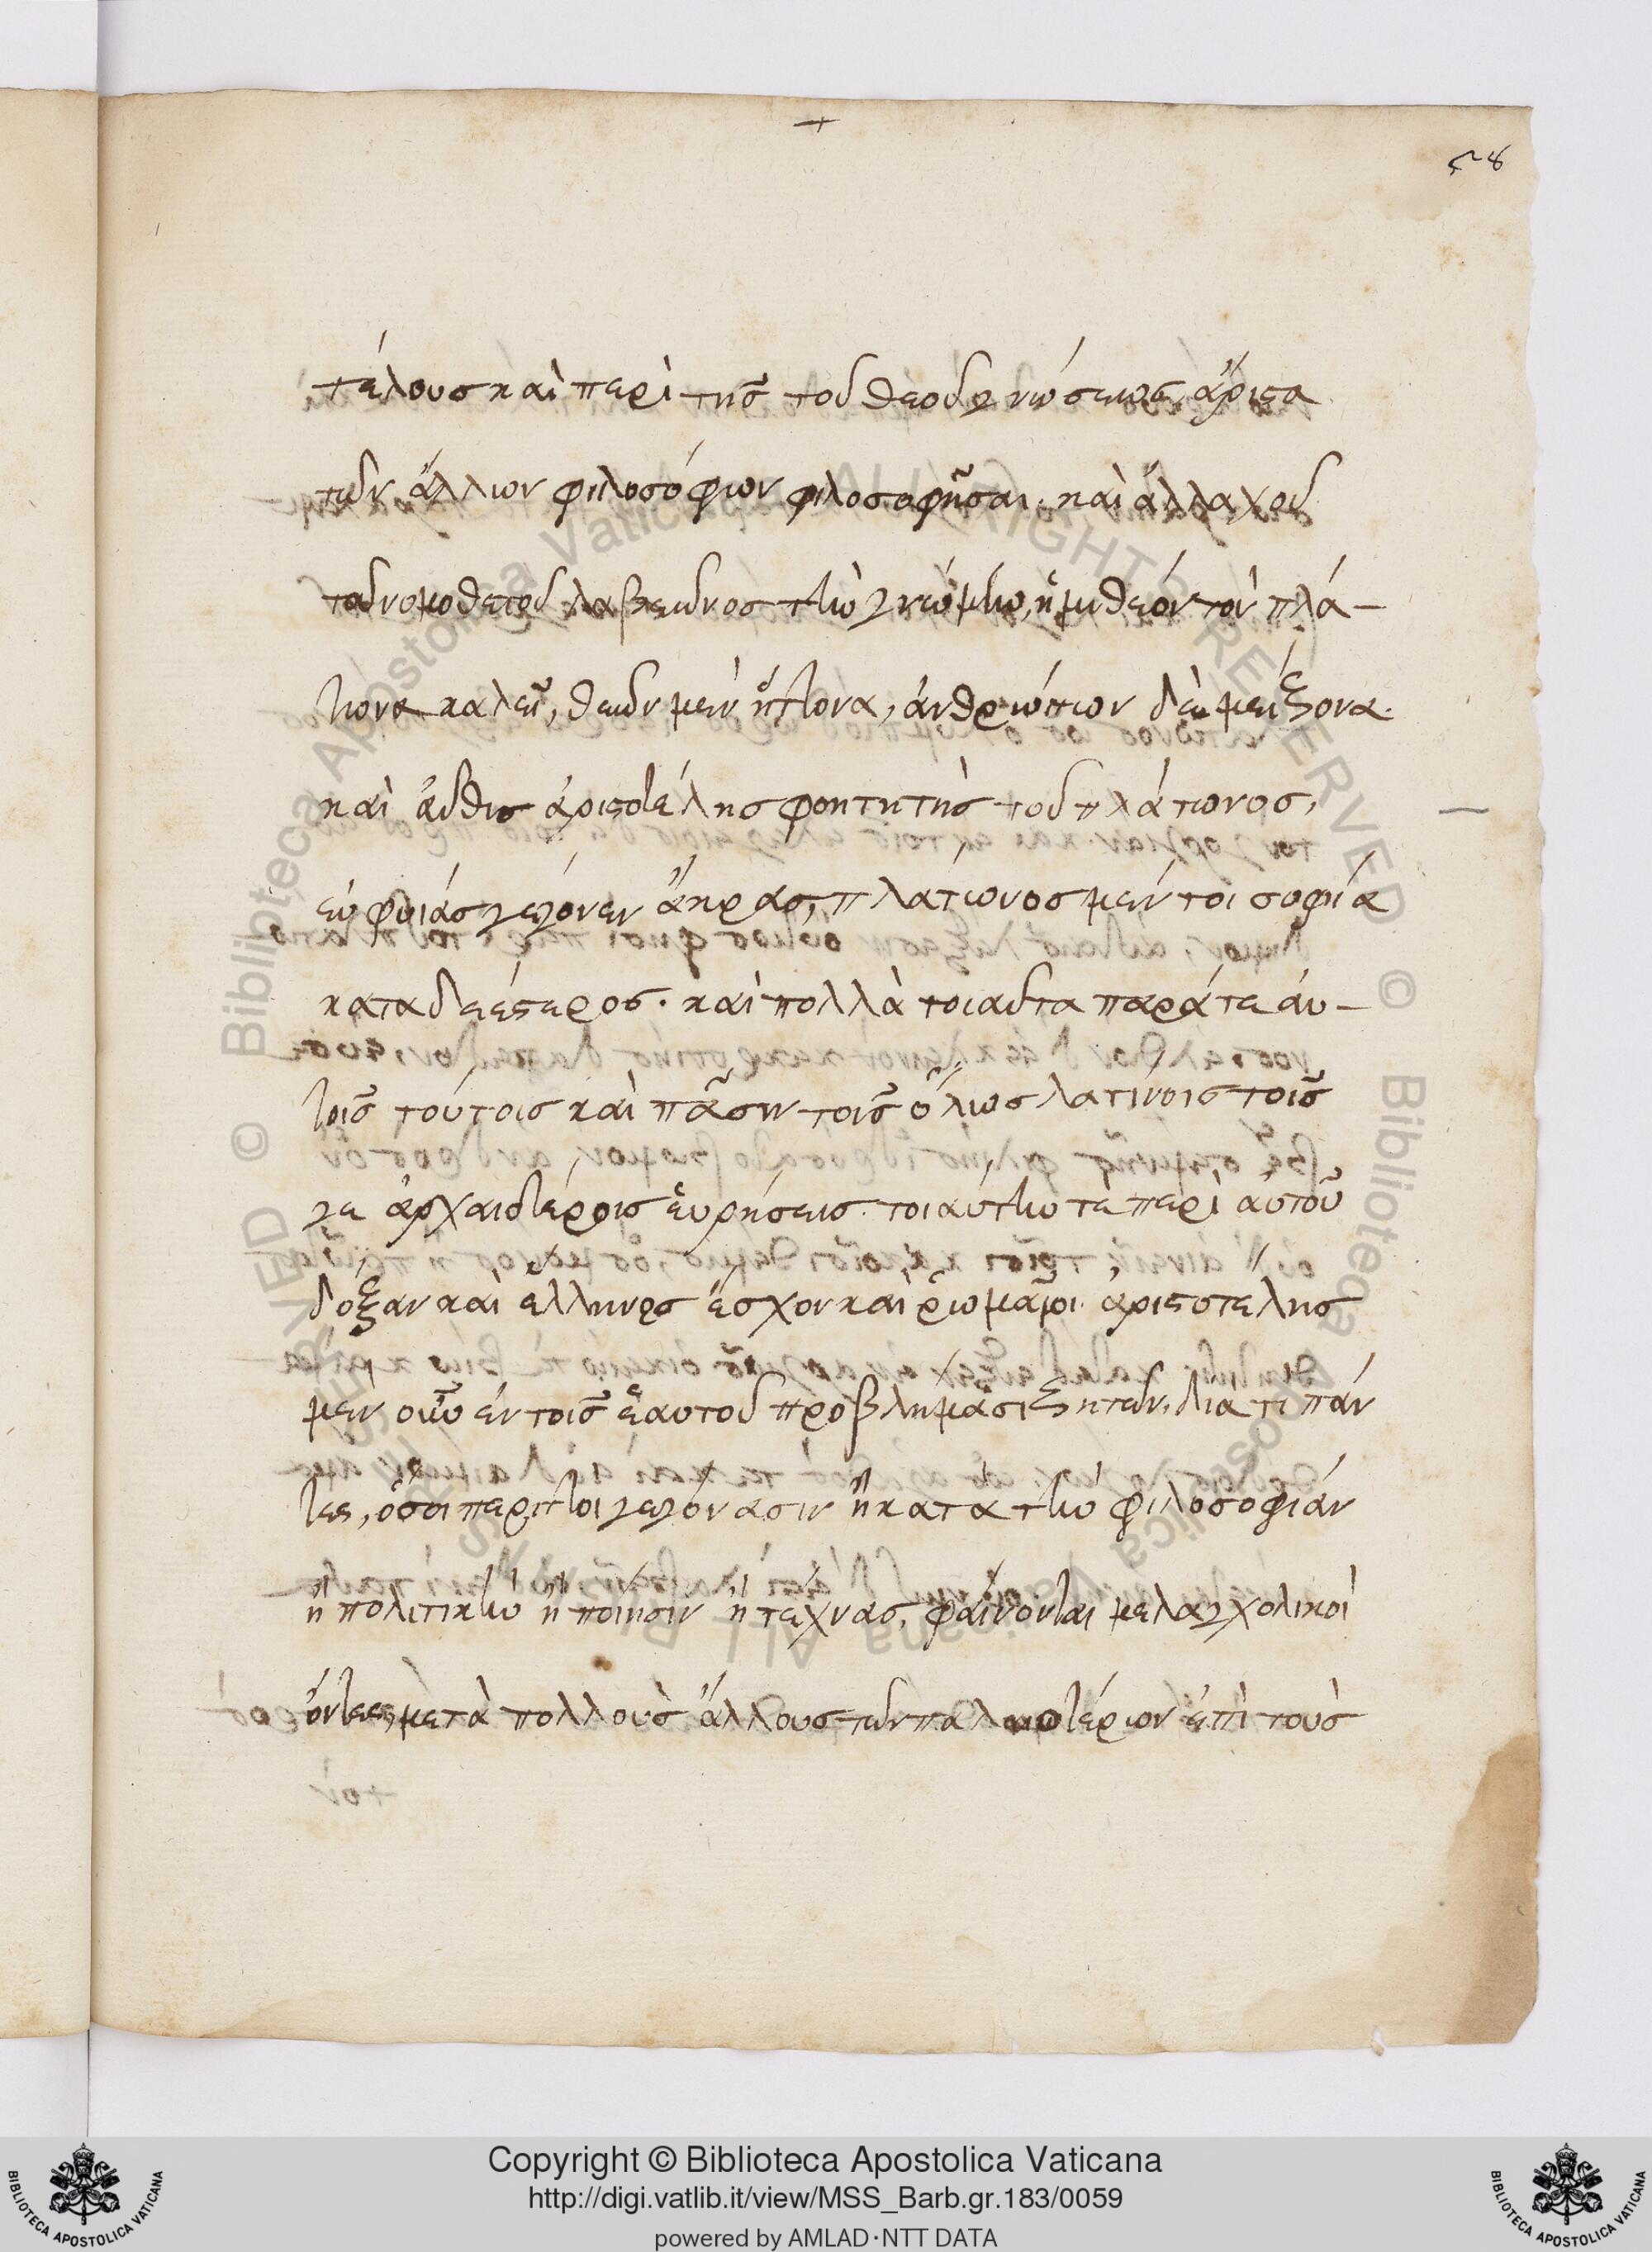 58
τέλους καὶ περὶ τῆς τοῦ θεοῦ γνώσεως ἄριστα
τῶν ἄλλων φιλοσόφων φιλοσοφῆσαι. καὶ ἀλλαχοῦ
τοῦ νομοθέτου λαβεῶνος τὴν γνώμην, ἡμιθεόν τὸν πλά-
τωνα καλεῖ, θεῶν μὲν ἥττονα, ἀνθρώπων δὲ μείζονα.
καὶ αὖθις ἀριστοτέλης φοιτητὴς τοῦ πλάτωνος,
εὐφυίας γέγονεν ἄκρας, πλάτωνος μέν τοι σοφία
καταδεέστερος. καὶ πολλὰ τοιαῦτα παρά τε αὐ-
τοῖς τούτοις καὶ πᾶσιν τοῖς ὅλως λατίνοις τοῖς
γε ἀρχαιοτέροις εὑρήσεις. τοιαύτην τε περὶ αὐτοῦ
δόξαν καὶ ἕλληνες ἔσχον καὶ ῥωμαῖοι. ἀριστοτέλης
μὲν οὖν ἐν τοῖς ἑαυτοῦ προβλήμασι ζητῶν, διατί πάν
τες, ὅσοι περιττοὶ γεγόνασιν ἢ κατὰ τὴν φιλοσοφίαν
ἢ πολιτικὴν ἢ ποίησιν ἢ τέχνας, φαίνονται μελαγχολικοὶ
ὄντες, μετὰ πολλοὺς ἄλλους τῶν παλαιοτέρων ἐπὶ τοὺς
© Biblioteca Apostolica Vaticana ALL RIGHTS RESERVED
Copyright © Biblioteca Apostolica Vaticana
http://digi.vatlib.it/view/MSS_Barb.gr.183/0059
powered by AMLAD·NTT DATA
BIBLIOTECA APOSTOLICA VATICANA
BIBLIOTECA APOSTOLICA VATICANA